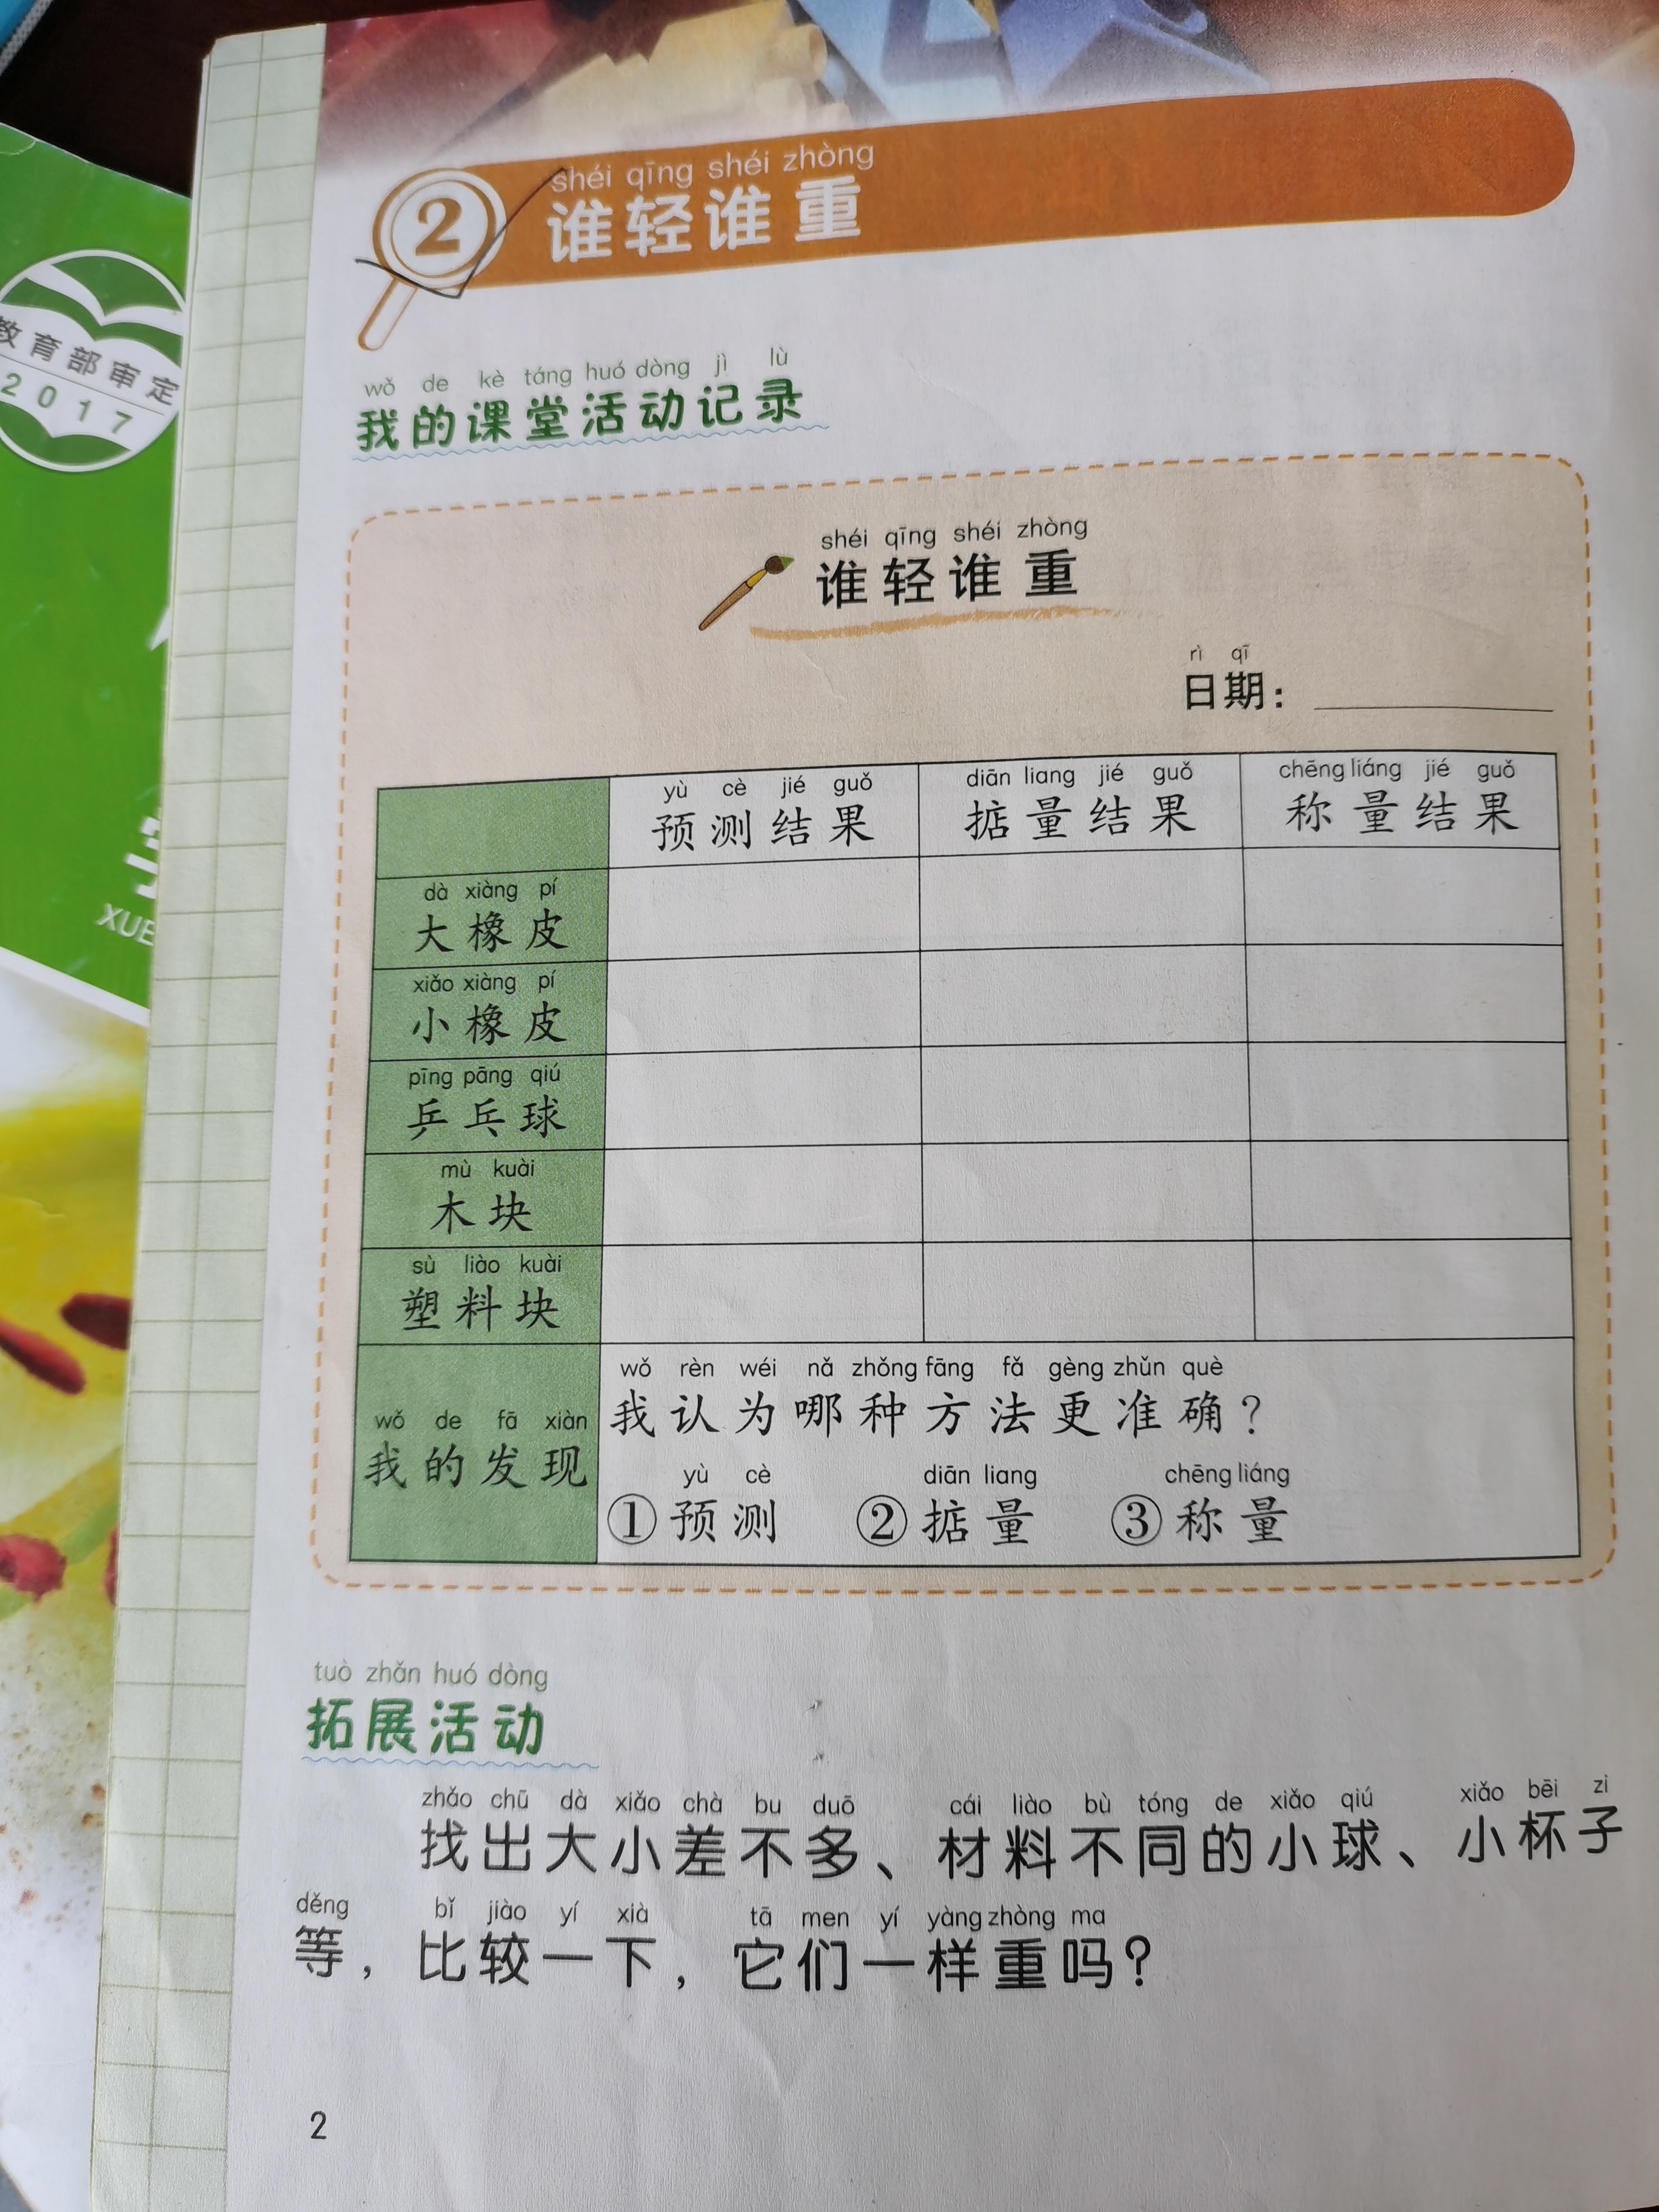 教育部审定
2017
XUE
shéi qīng shéi zhòng
2 谁轻谁重
wǒ de kè táng huó dòng jì lù
我的课堂活动记录
shéi qīng shéi zhòng
谁轻谁重
rì qī
日期：
yù cè jié guǒ diān liang jié guǒ chēng liáng jié guǒ
预测结果 掂量结果 称量结果
dà xiàng pí
大橡皮
xiǎo xiàng pí
小橡皮
pīng pāng qiú
乒乓球
mù kuài
木块
sù liào kuài
塑料块
wǒ de fā xiàn
我的发现
wǒ rèn wéi nǎ zhǒng fāng fǎ gèng zhǔn què
我认为哪种方法更准确？
yù cè diān liang chēng liáng
①预测 ②掂量 ③称量
tuò zhǎn huó dòng
拓展活动
zhǎo chū dà xiǎo chà bu duō cái liào bù tóng de xiǎo qiú xiǎo bēi zi
找出大小差不多、材料不同的小球、小杯子
děng bǐ jiào yí xià tā men yí yàng zhòng ma
等，比较一下，它们一样重吗？
2